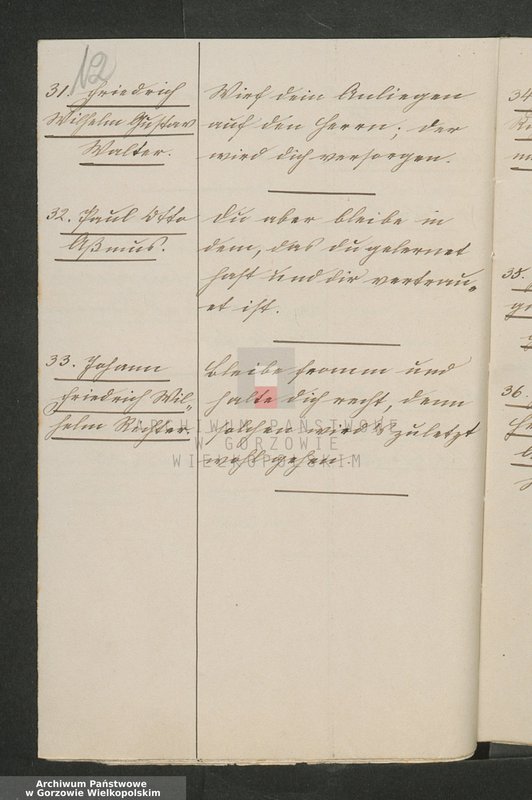 12
31. Friedrich
Wilhelm Gustav
Walter.
Wirf dein Anliegen
auf den Herrn; der
wird dich versorgen.
32. Paul Otto
Aßmus.
Du aber bleibe in
dem, das du gelernet
hast und dir vertrau„
et ist.
33. Johann
Friedrich Wil„
helm Richter.
Bleibe fromm und
halte dich recht, denn
solchen wird's zuletzt
wohl gehen.
34
35.
36.
ARCHIWUM PAŃSTWOWE
W GORZOWIE
WIELKOPOLSKIM
Archiwum Państwowe
w Gorzowie Wielkopolskim